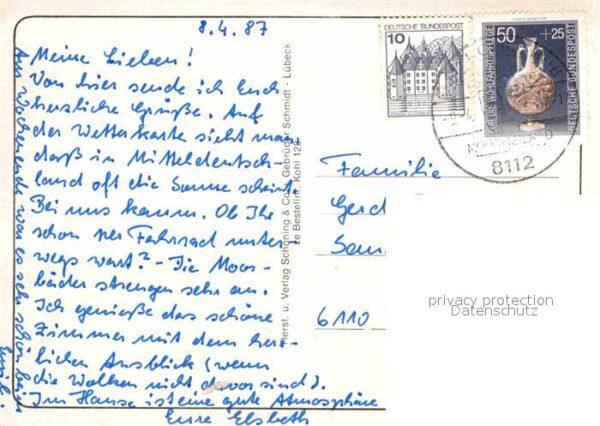 8.4.87
Meine Lieben!
Von hier sende ich Euch
herzliche Grüße. Auf
der Wetterkarte sieht man
daß in Mitteldeutsch-
land oft die Sonne scheint.
Bei uns kaum. Ob Ihr
schon per Fahrrad unter-
wegs wart? - Die Moor-
bäder strengen sehr an.
Ich genieße das schöne
Zimmer mit dem herr-
lichen Ausblick (wenn
die Wolken nicht davor sind).
Im Hause ist eine gute Atmosphäre
Eure Elsbeth
Am Wochenende war es sehr schön beim
Herst. u. Verlag Schöning & Co. Gebrüder Schmidt - Lübeck
Bestellnr. Kohl 12
10
DEUTSCHE BUNDESPOST
50 +25
DEUTSCHE BUNDESPOST
8112
Familie
Gerd
6110
privacy protection
Datenschutz